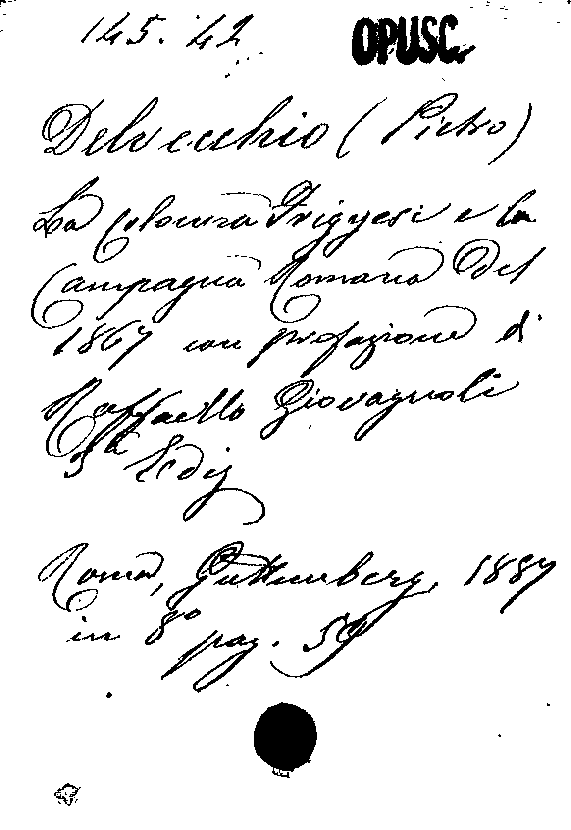 145.42 OPUSC.
Delvecchio (Pietro)
La colonna Frigyesi e la
Campagna Romana del
1867 con prefazione di
Raffaello Giovagnoli
3a Ediz
Roma, Guttemberg, 1887
in 8° pag. 59